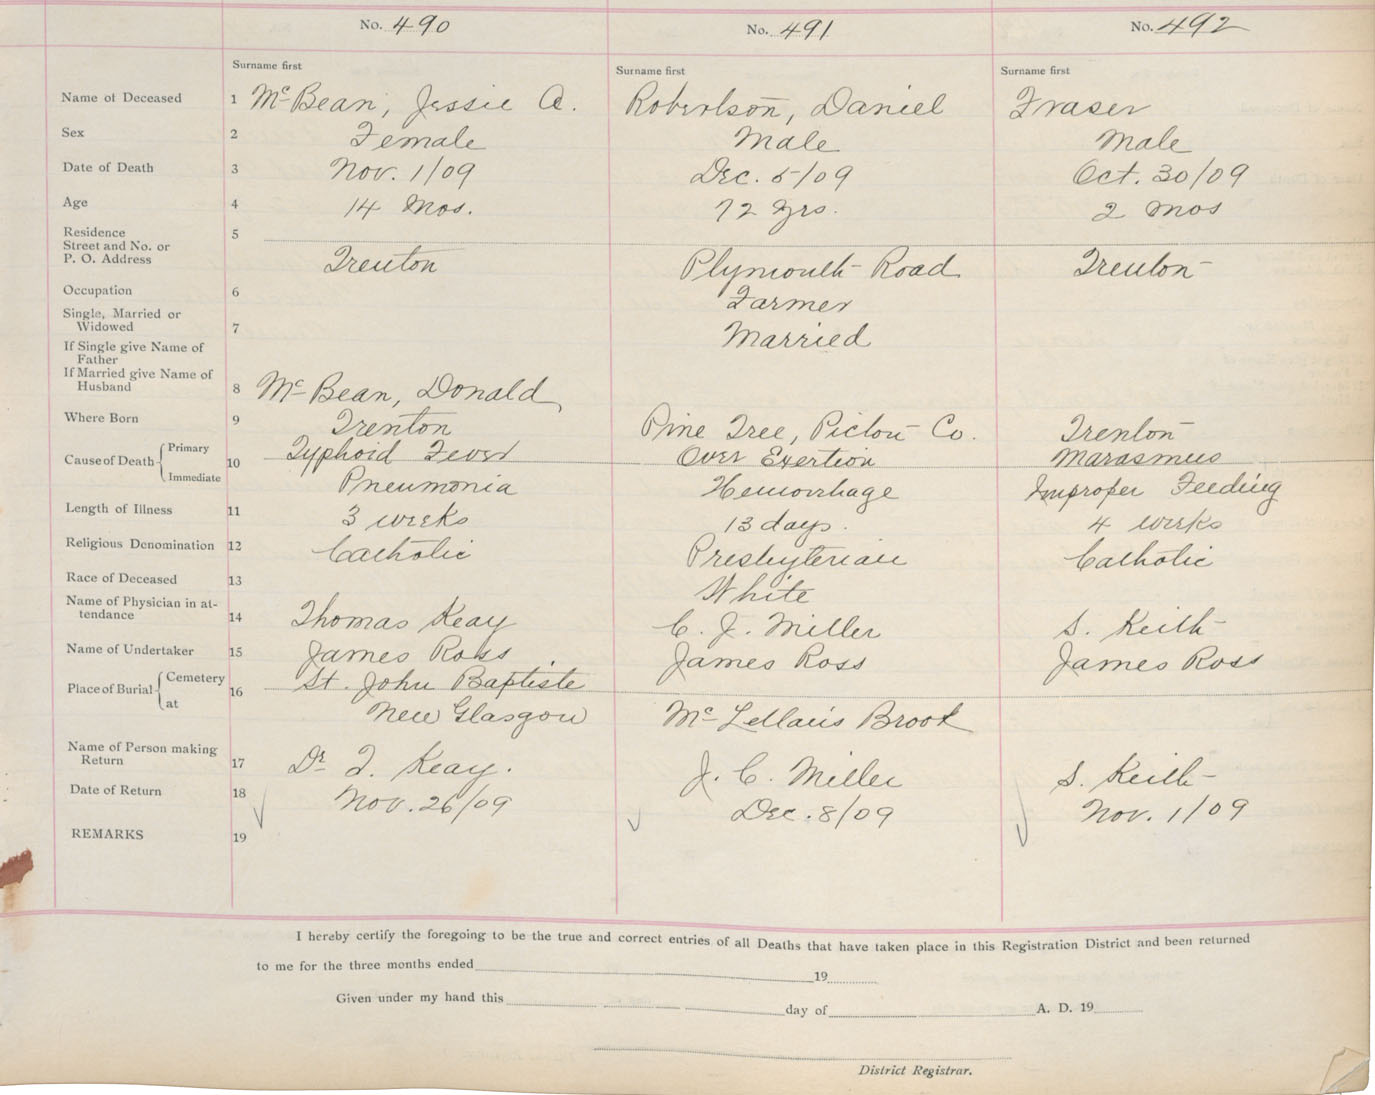 No. 490 No. 491 No. 492
Surname first Surname first Surname first
Name of Deceased 1 McBean, Jessie A. Robertson, Daniel Fraser
Sex 2 Female Male Male
Date of Death 3 Nov. 1/09 Dec. 5/09 Oct. 30/09
Age 4 14 Mos. 72 Yrs. 2 Mos
Residence 5
Street and No. or
P. O. Address Trenton Plymouth Road Trenton
Occupation 6 Farmer
Single, Married or
Widowed 7 Married
If Single give Name of
Father
If Married give Name of
Husband 8 McBean, Donald
Where Born 9 Trenton Pine Tree, Pictou Co. Trenton
Cause of Death Primary 10 Typhoid Fever Over Exertion Marasmus
Immediate Pneumonia Hemorrhage Improper Feeding
Length of Illness 11 3 weeks 13 days. 4 weeks
Religious Denomination 12 Catholic Presbyterian Catholic
Race of Deceased 13 White
Name of Physician in at-
tendance 14 Thomas Keay C. J. Miller S. Keith
Name of Undertaker 15 James Ross James Ross James Ross
Place of Burial Cemetery 16 St. John Baptiste
at New Glasgow McLellan's Brook
Name of Person making
Return 17 Dr T. Keay. J. C. Miller S. Keith
Date of Return 18 Nov. 26/09 Dec. 8/09 Nov. 1/09
REMARKS 19
I hereby certify the foregoing to be the true and correct entries of all Deaths that have taken place in this Registration District and been returned
to me for the three months ended 19
Given under my hand this day of A. D. 19
District Registrar.